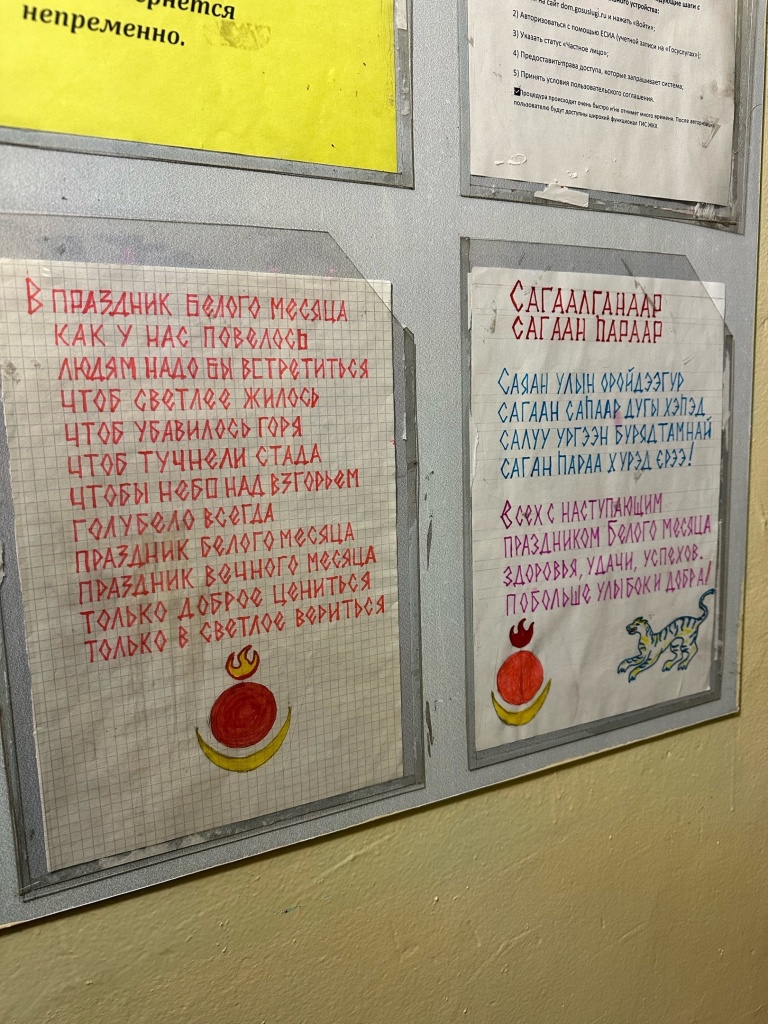 непременно.
на сайт dom.gosuslugi.ru и нажать «Войти»;
2) Авторизоваться с помощью ЕСИА (учетной записи на «Госуслугах»);
3) Указать статус «Частное лицо»;
4) Предоставить права доступа, которые запрашивает система;
5) Принять условия пользовательского соглашения.
Процедура происходит очень быстро и не отнимет много времени. После авторизации
пользователю будут доступны широкий функционал ГИС ЖКХ
В ПРАЗДНИК БЕЛОГО МЕСЯЦА
КАК У НАС ПОВЕЛОСЬ
ЛЮДЯМ НАДО БЫ ВСТРЕТИТЬСЯ
ЧТОБ СВЕТЛЕЕ ЖИЛОСЬ
ЧТОБ УБАВИЛОСЬ ГОРЯ
ЧТОБ ТУЧНЕЛИ СТАДА
ЧТОБЫ НЕБО НАД ВЗГОРЬЕМ
ГОЛУБЕЛО ВСЕГДА
ПРАЗДНИК БЕЛОГО МЕСЯЦА
ПРАЗДНИК ВЕЧНОГО МЕСЯЦА
ТОЛЬКО ДОБРОЕ ЦЕНИТЬСЯ
ТОЛЬКО В СВЕТЛОЕ ВЕРИТЬСЯ
САГААЛГАНААР
САГААН ҺАРААР
САЯАН УЛЫН ОРОЙДЭЭГУР
САГААН САҺААР ДУГЫ ХЭПЭД
САЛУУ УРГЭЭН БУРЯДТАМНАЙ
САГАН ҺАРАА ХУРЭД ЕРЭЭ!
ВСЕХ С НАСТУПАЮЩИМ
ПРАЗДНИКОМ БЕЛОГО МЕСЯЦА
ЗДОРОВЬЯ, УДАЧИ, УСПЕХОВ.
ПОБОЛЬШЕ УЛЫБОК И ДОБРА!